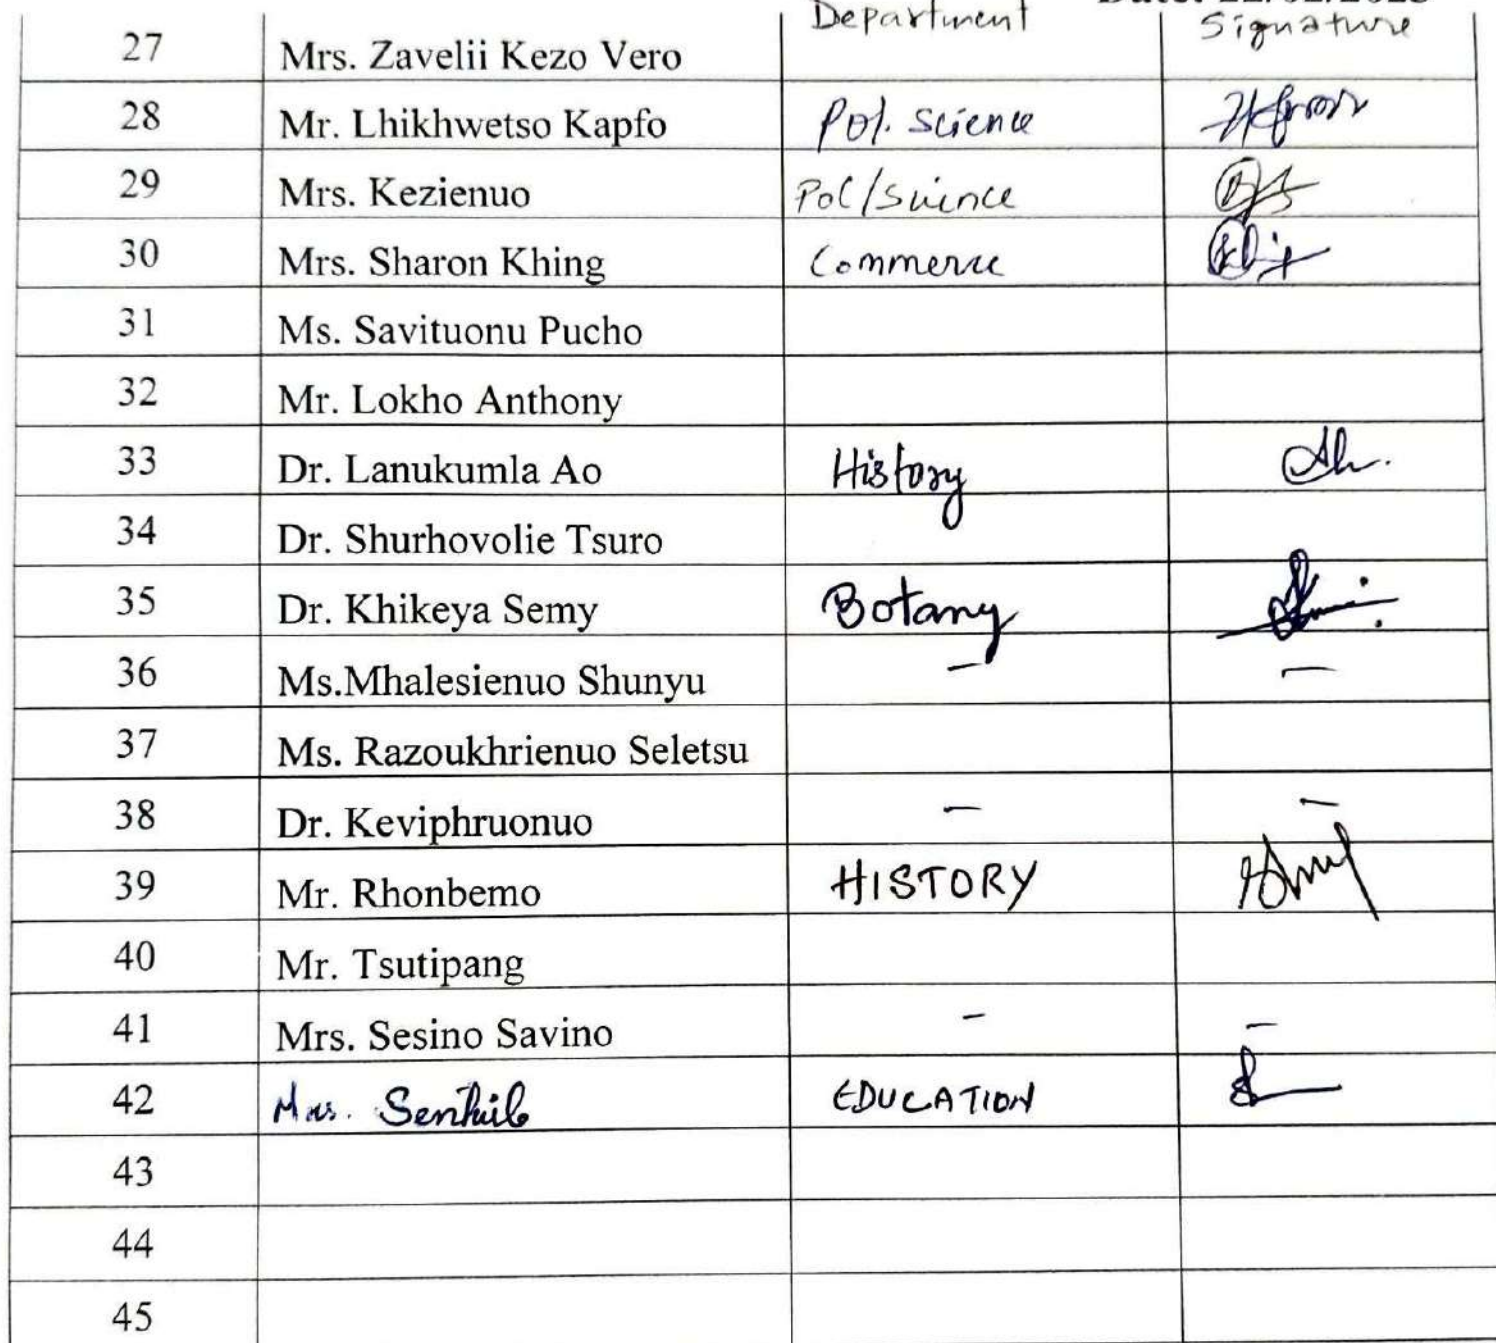 Department Signature
27 Mrs. Zavelii Kezo Vero
28 Mr. Lhikhwetso Kapfo Pol. Science
29 Mrs. Kezienuo Pol/Science
30 Mrs. Sharon Khing Commerce
31 Ms. Savituonu Pucho
32 Mr. Lokho Anthony
33 Dr. Lanukumla Ao History
34 Dr. Shurhovolie Tsuro
35 Dr. Khikeya Semy Botany
36 Ms.Mhalesienuo Shunyu – –
37 Ms. Razoukhrienuo Seletsu
38 Dr. Keviphruonuo – –
39 Mr. Rhonbemo HISTORY
40 Mr. Tsutipang
41 Mrs. Sesino Savino – –
42 Mrs. EDUCATION
43
44
45